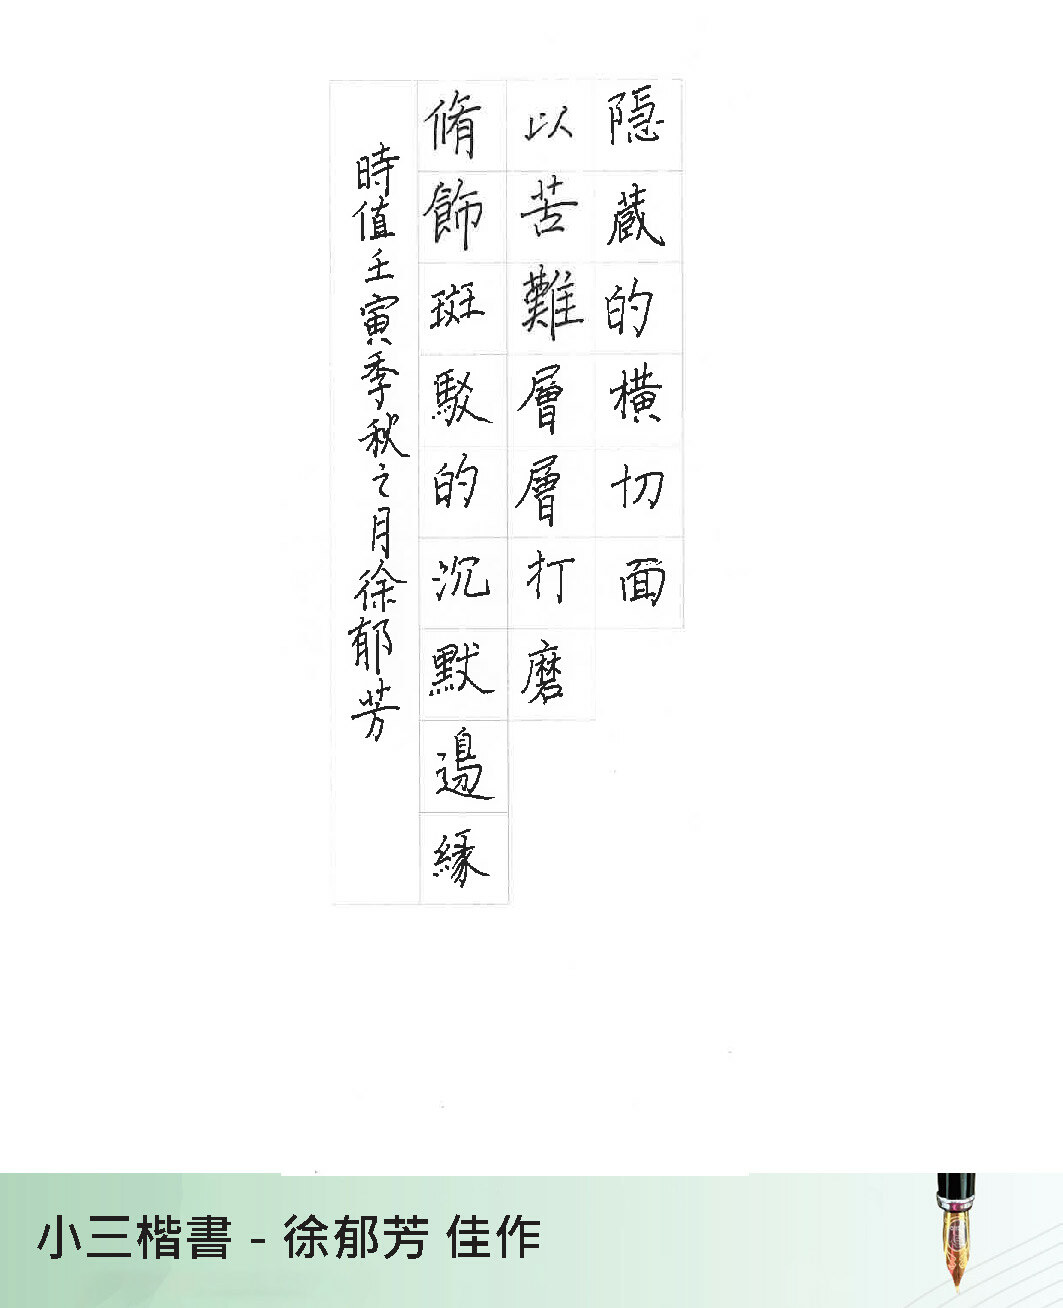 隱蔵的橫切面
以苦難層層打磨
脩飾斑駁的沉默邊緣
時值壬寅季秋之月徐郁芳
小三楷書 - 徐郁芳 佳作